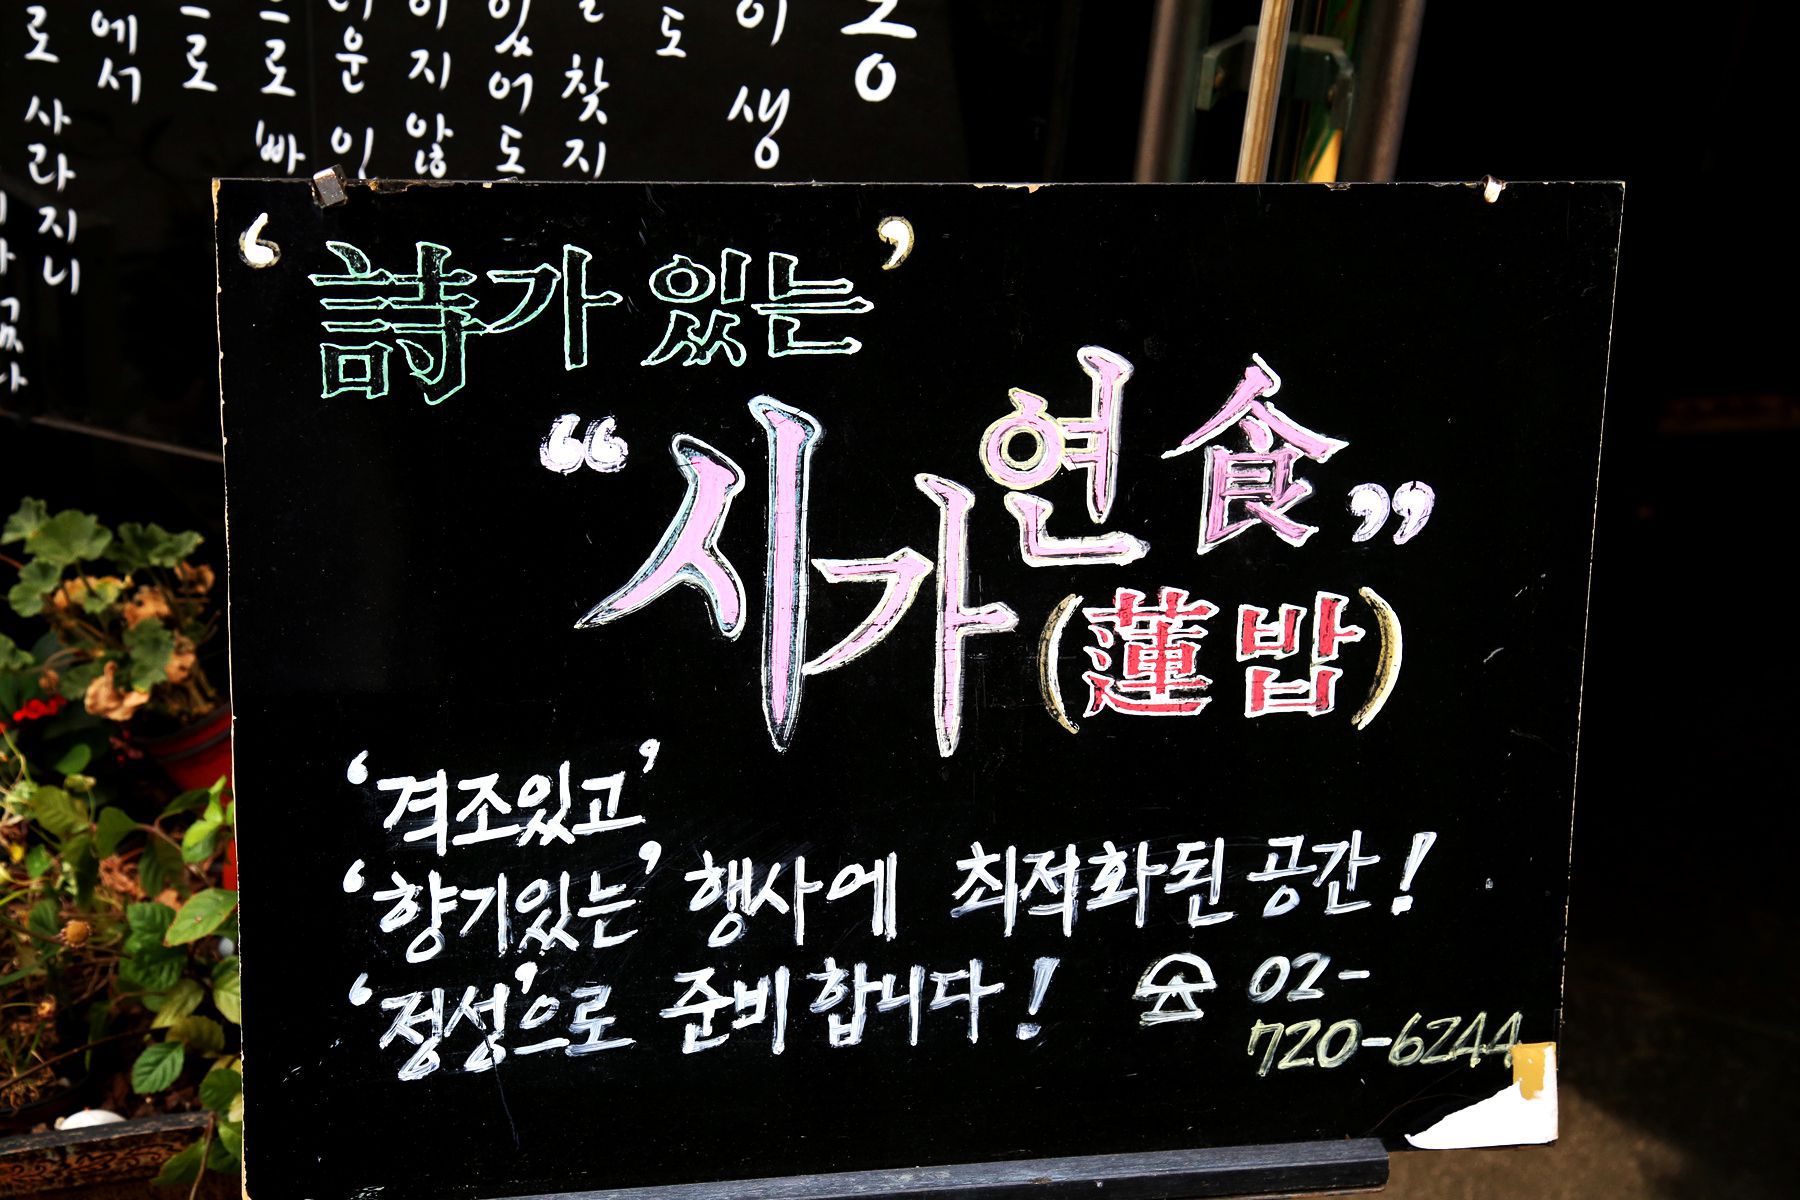 ‘詩가 있는’
“시가연食”
(蓮밥)
‘격조있고’
‘향기있는’ 행사에 최적화된 공간!
‘정성’으로 준비합니다! ☎ 02-
720-6244
이생
도
찾지
있어도
이지 않
으로 빠
으로
에서
로 사라지니